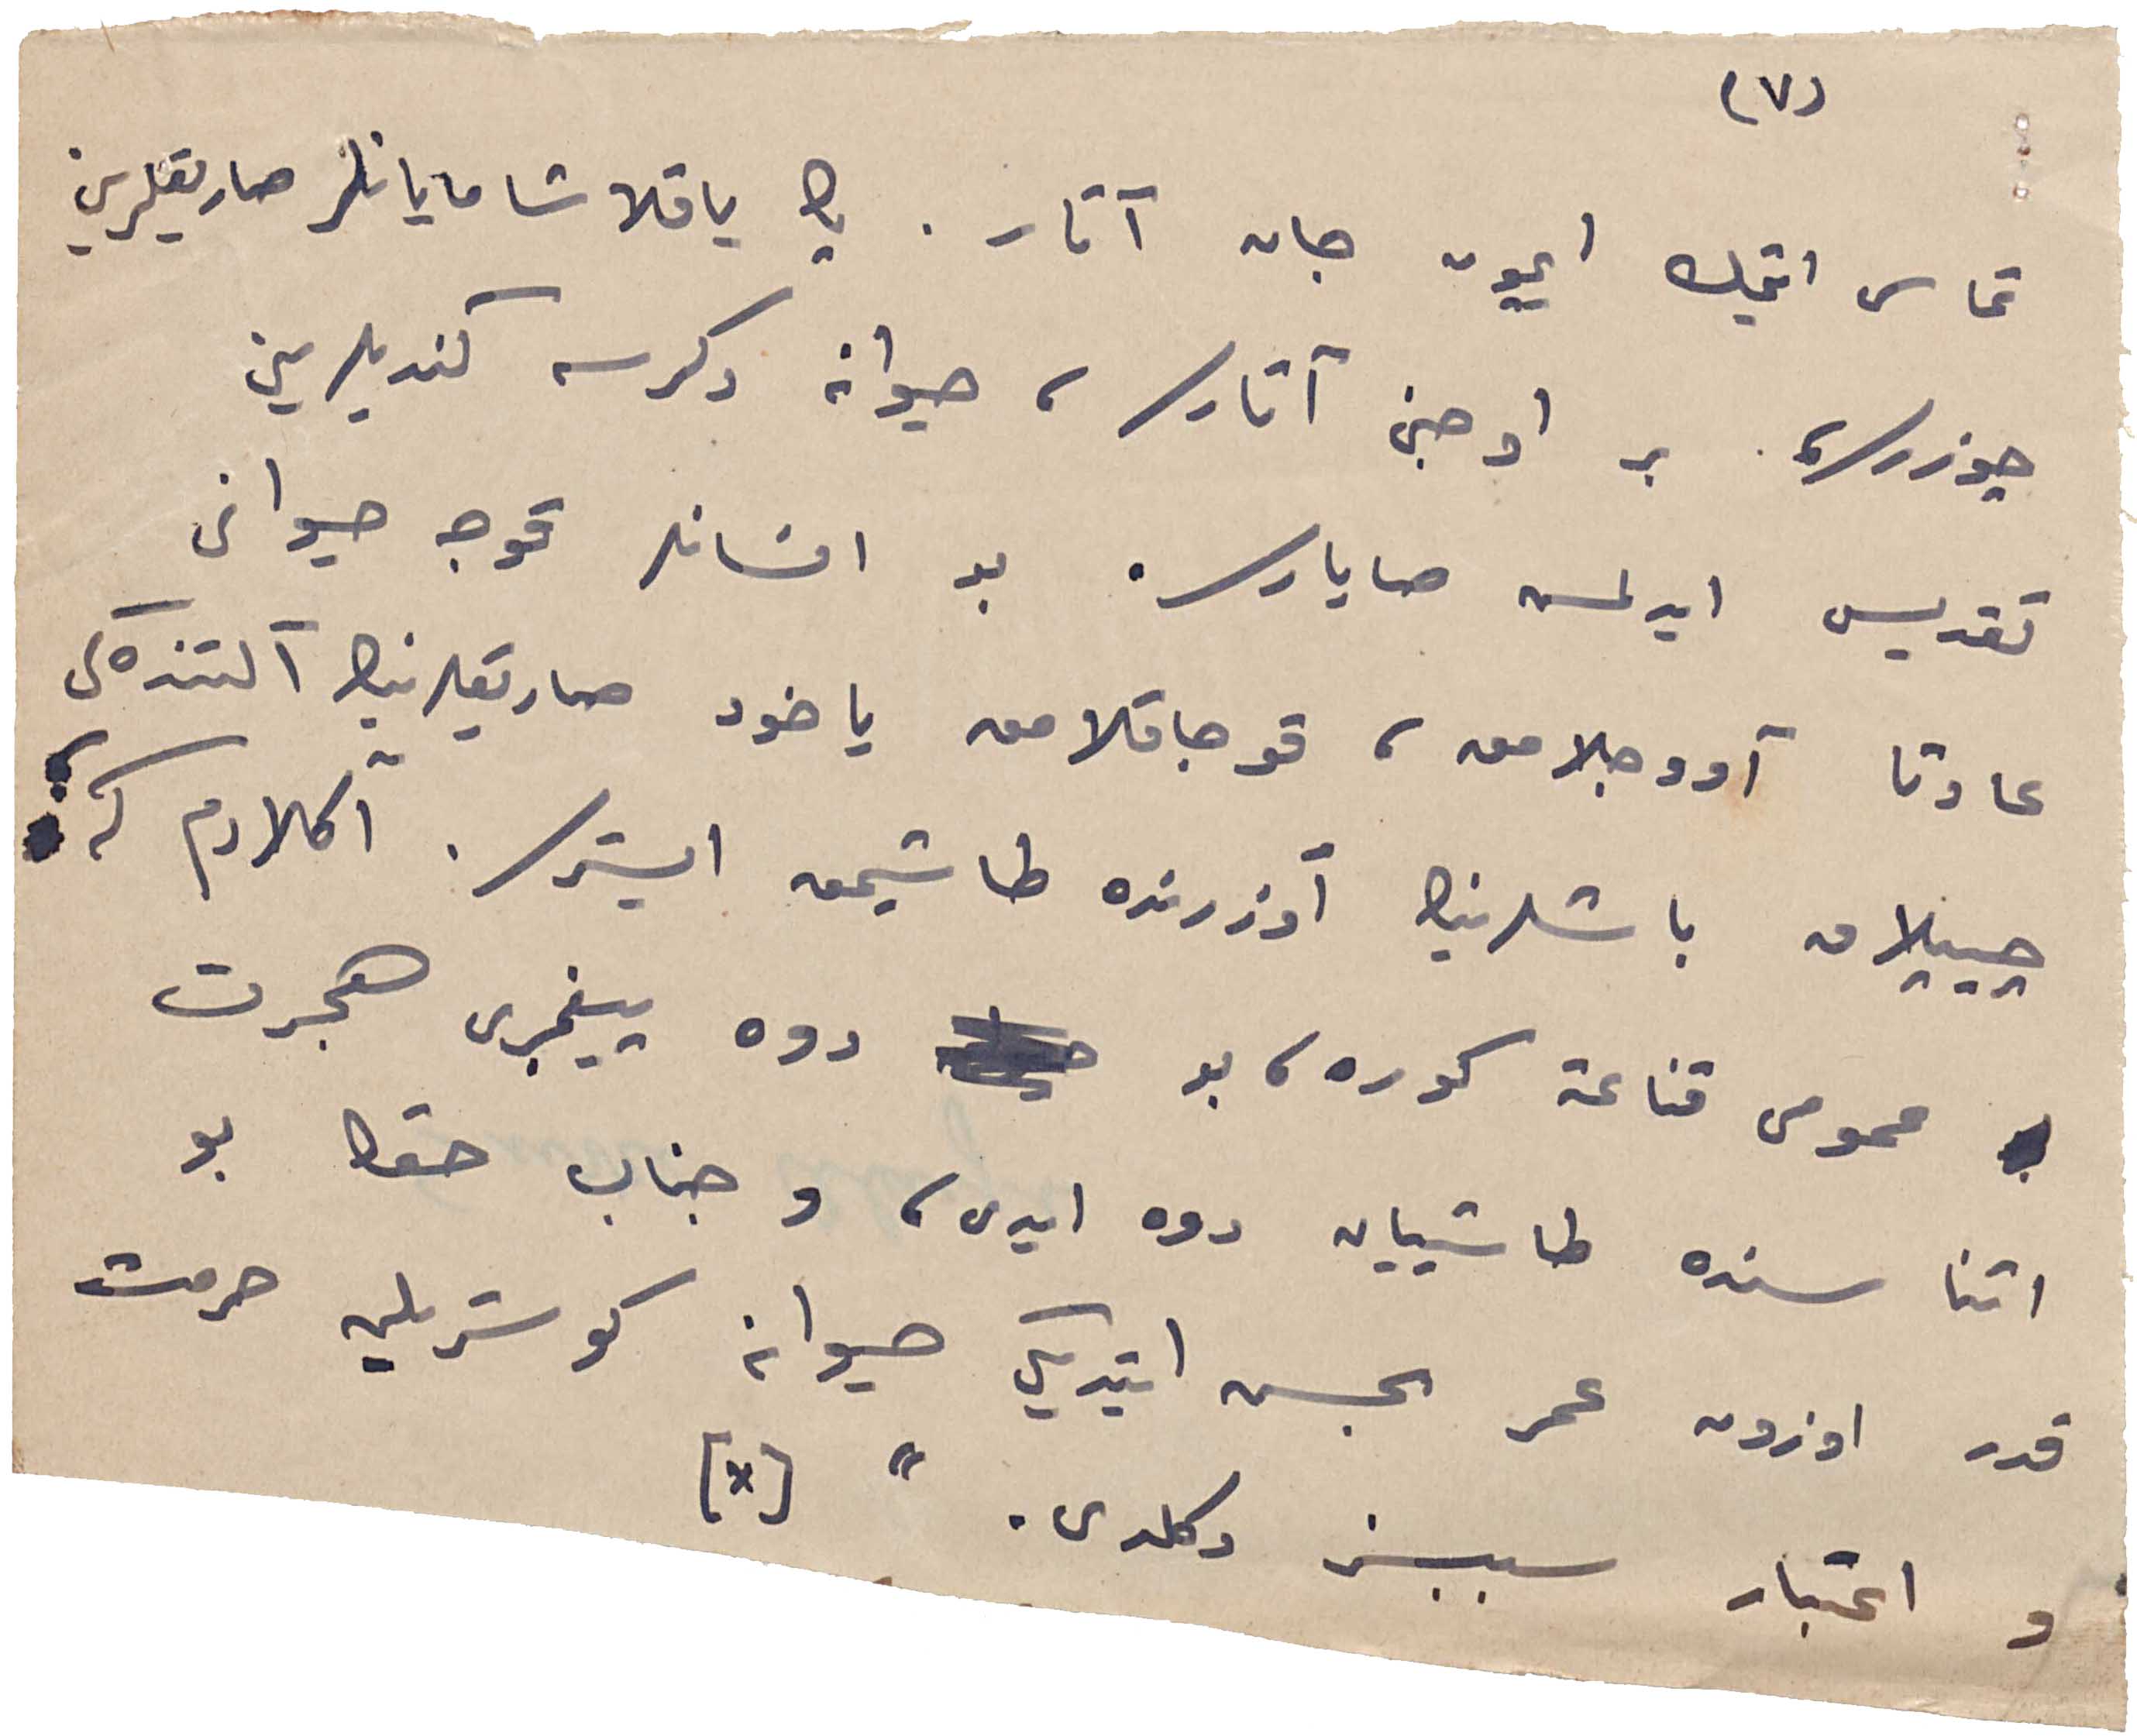 (٧)
تماس ایتمك ایچون جان آتار. پك یاقلاشامایانلر صاریقلرینی
چوزرلر، بر اوجنی آتارلر، حیوانه دگرسه كندیلرینی
تقدیس ایدلمش صایارلر. بو انسانلر قوجه حیوانی
عادتا آووجلامق، قوجاقلامق یاخود صاریقلرینك آلتنده‌كی
چیپلاق باشلرینك اوزرنده طاشیمق ایسترلر. آكلادم كه،
عمومی قناعته كوره، بو دوه پیغمبری هجرت
اثناسنده طاشییان دوه ایدی، و جناب حقك بو
قدر اوزون عمر بخش ایتدیكی حیوانه كوستریلن حرمت
و اعتبار سببسز دكلدی. » [×]